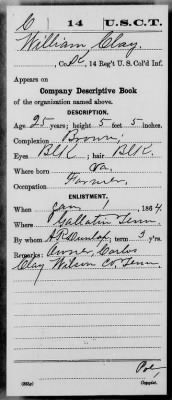 C 14 U.S.C.T.
William Clay,
Co. K, 14 Reg't U. S. Col'd Inf.
Appears on
Company Descriptive Book
of the organization named above.
DESCRIPTION.
Age 25 years; height 5 feet 5 inches.
Complexion Brown,
Eyes BLK; hair BLK.
Where born Va,
Occupation Farmer,
ENLISTMENT.
When Jan, 1, 1864.
Where Gallatin Tenn.
By whom A R Dunlap, term 3 y'rs.
Remarks: Owner, Carlos
Clay Wilson Co, Tenn.
Copyist.